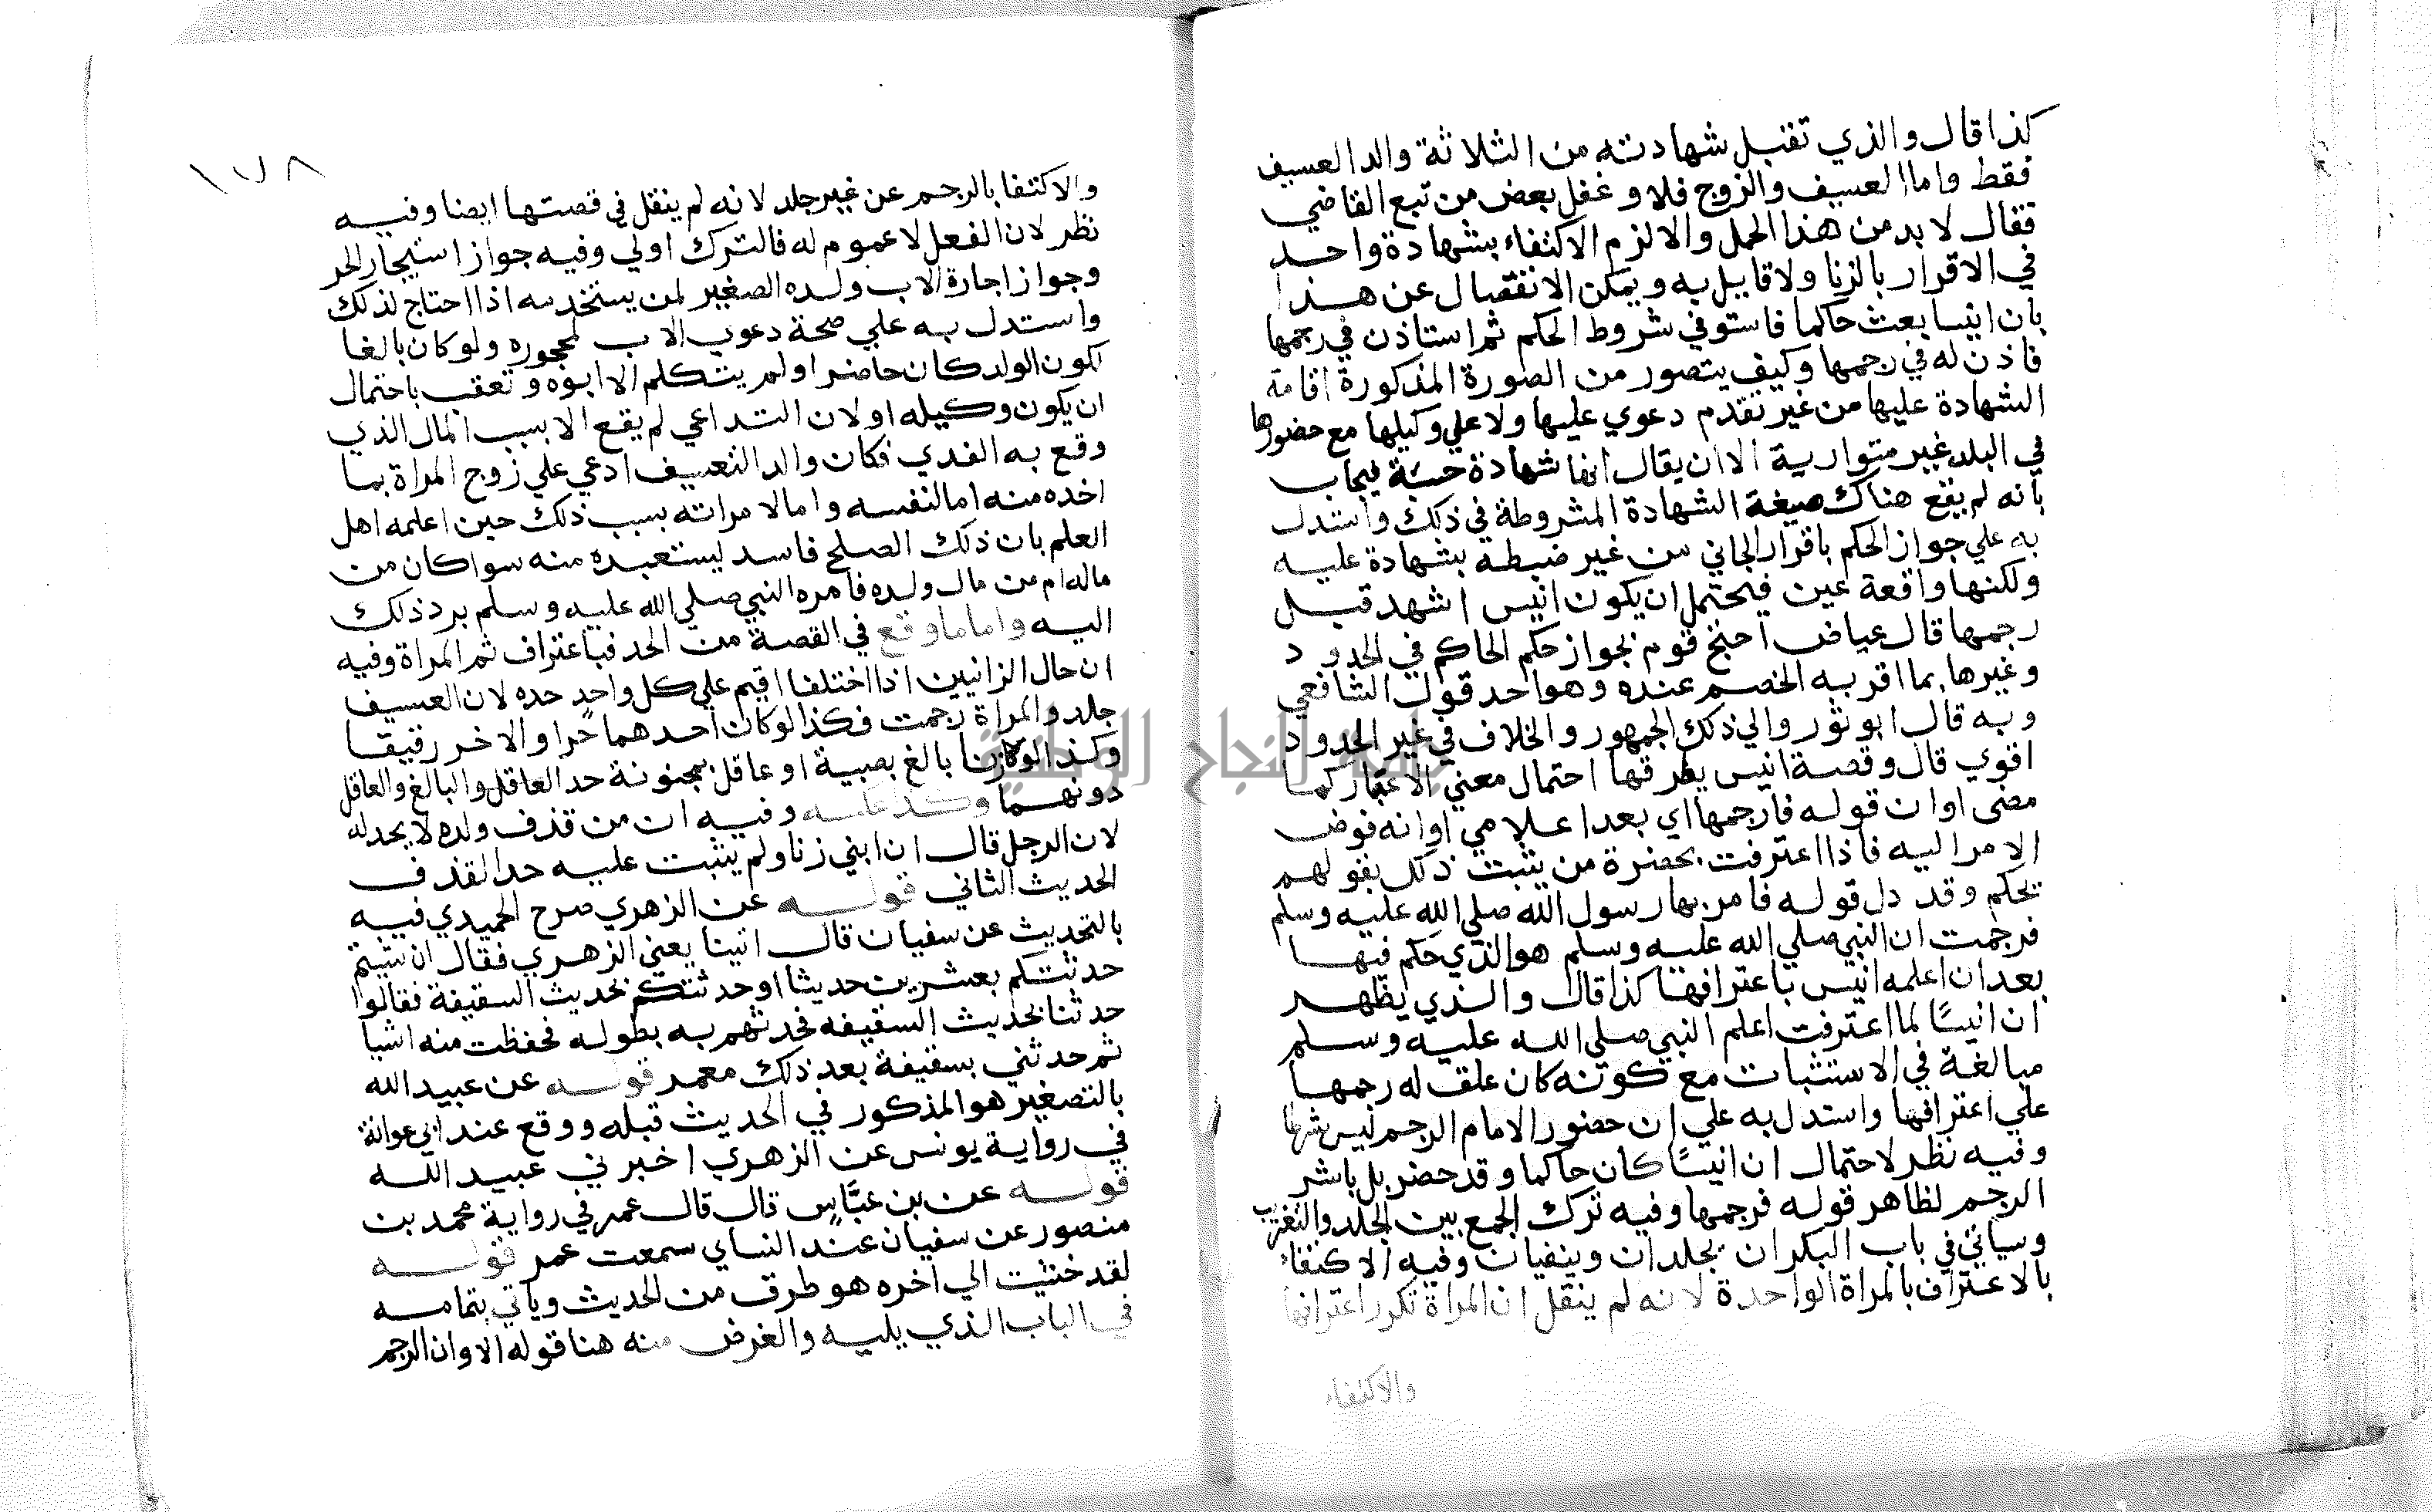 كذا قال والذي تقبل شهادته من الثلاثة والد العسيف
فقط واما العسيف والزوج فلا وغفل بعض من تبع القاضي
فقال لا بد من هذا الحمل والا لزم الاكتفاء بشهادة واحد
في الاقرار بالزنا ولا قايل به ويمكن الانفصال عن هذا
بان انيسا بعث حاكما فاستوفي شروط الحكم ثم استاذن في رجمها
فاذن له في رجمها وكيف يتصور من الصورة المذكورة اقامة
الشهادة عليها من غير تقدم دعوي عليها ولا علي وكيلها مع حضورها
في البلد غير متوارية الا ان يقال انها شهادة حسبة فيجاب
بانه لم يقع هناك صيغة الشهادة المشروطة في ذلك واستدل
به علي جواز الحكم باقرار الجاني من غير ضبطه بشهادة عليه
ولكنها واقعة عين فيحتمل ان يكون انيس اشهد قبل
رجمها قال عياض احتج قوم بجواز حكم الحاكم في الحدود
وغيرها بما اقر به الخصم عنده وهو احد قولي الشافعي
وبه قال ابو ثور والي ذلك الجمهور والخلاف في غير الحدود
اقوي قال وقصة انيس يطرقها احتمال معني الاعتبار كما
مضى او ان قوله فارجمها اي بعد اعلامي او انه فوض
الامر اليه فاذا اعترفت بحضرة من يثبت ذلك بقولهم
يحكم وقد دل قوله فامر بها رسول الله صلي الله عليه وسلم
فرجمت ان النبي صلي الله عليه وسلم هو الذي حكم فيها
بعد ان اعلمه انيس باعترافها كذا قال والذي يظهر
ان انيسًا لما اعترفت اعلم النبي صلي الله عليه وسلم
مبالغة في الاستثبات مع كونه كان علق له رجمها
علي اعترافها واستدل به علي ان حضور الامام الرجم ليس شرطا
وفيه نظر لاحتمال ان انيسًا كان حاكما وقد حضر بل باشر
الرجم لظاهر قوله فرجمها وفيه ترك الجمع بين الجلد والتغريب
وسياتي في باب البكران يجلدان وينفيان وفيه الاكتفاء
بالاعتراف بالمراة الواحدة لانه لم ينقل ان المراة تكرر اعترافها
والاكتفاء
١٧٨
والاكتفا بالرجم عن غير جلد لانه لم ينقل في قصتها ايضا وفيه
نظر لان الفعل لا عموم له فالترك اولي وفيه جواز استيجار الحر
وجواز اجارة الاب ولده الصغير لمن يستخدمه اذا احتاج لذلك
واستدل به علي صحة دعوي الاب لمحجوره ولو كان بالغا
لكون الولد كان حاضرا ولم يتكلم الا ابوه وتعقب باحتمال
ان يكون وكيله او لان التداعي لم يقع الا بسبب المال الذي
وقع به الفدي فكان والد العسيف ادعي علي زوج المراة بما
اخده منه اما لنفسه واما لامراته بسبب ذلك حين اعلمه اهل
العلم بان ذلك الصلح فاسد ليستعيده منه سوا كان من
ماله ام من مال ولده فامره النبي صلي الله عليه وسلم برد ذلك
اليه واما ما وقع في القصة من الحد فباعتراف ثم المراة وفيه
ان حال الزانيين اذا اختلفا اقيم علي كل واحد حده لان العسيف
جلد والمراة رجمت فكذا لو كان احدهما حرا والاخر رقيقا
وكذا لو كان زنا بالغ بصبية او عاقل بمجنونة حد العاقل والبالغ والعاقل
دونهما وكذا عكسه وفيه ان من قذف ولده لا يحد له
لان الرجل قال ان ابني زنا ولم يثبت عليه حد القذف
الحديث الثاني قوله عن الزهري صرح الحميدي فيه
بالتحديث عن سفيان قال اتينا يعني الزهري فقال ان شيتم
حدثتكم بعشرين حديثا او حدثتكم بحديث السقيفة فقالوا
حدثنا بحديث السقيفه فحدثهم به بطوله فحفظت منه اشيا
ثم حدثني بسقيفة بعد ذلك معمر قوله عن عبيد الله
بالتصغير هو المذكور في الحديث قبله ووقع عند ابي عوانة
في رواية يونس عن الزهري اخبرني عبيد الله
قوله عن بن عبَّاس قال قال عمر في رواية محمد بن
منصور عن سفيان عند النساي سمعت عمر قوله
لقد خشيت الي اخره هو طرف من الحديث وياتي بتمامه
في الباب الذي يليه والغرض منه هنا قوله الا وان الرجم
جامعة النجاح الوطنية